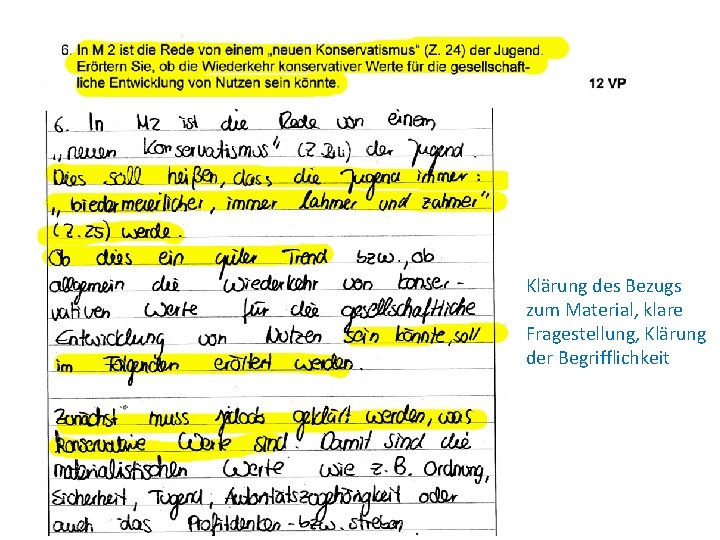 6. In M 2 ist die Rede von einem „neuen Konservatismus“ (Z. 24) der Jugend.
Erörtern Sie, ob die Wiederkehr konservativer Werte für die gesellschaft-
liche Entwicklung von Nutzen sein könnte.
12 VP
6. In M2 ist die Rede von einem
„neuen Konservatismus" (Z.24) der Jugend.
Dies soll heißen, dass die Jugend immer:
„biedermeierlicher, immer lahmer und zahmer"
(Z.25) werde.
Ob dies ein guter Trend bzw., ob
allgemein die Wiederkehr von konser-
vativen Werte für die gesellschaftliche
Entwicklung von Nutzen sein könnte, soll
im Folgenden erötert werden.
Zunächst muss jedoch geklärt werden, was
konservative Werte sind. Damit sind die
materialistischen Werte wie z.B. Ordnung,
Sicherheit, Tugend, oder
auch das Profitdenken - bzw. streben
Klärung des Bezugs
zum Material, klare
Fragestellung, Klärung
der Begrifflichkeit